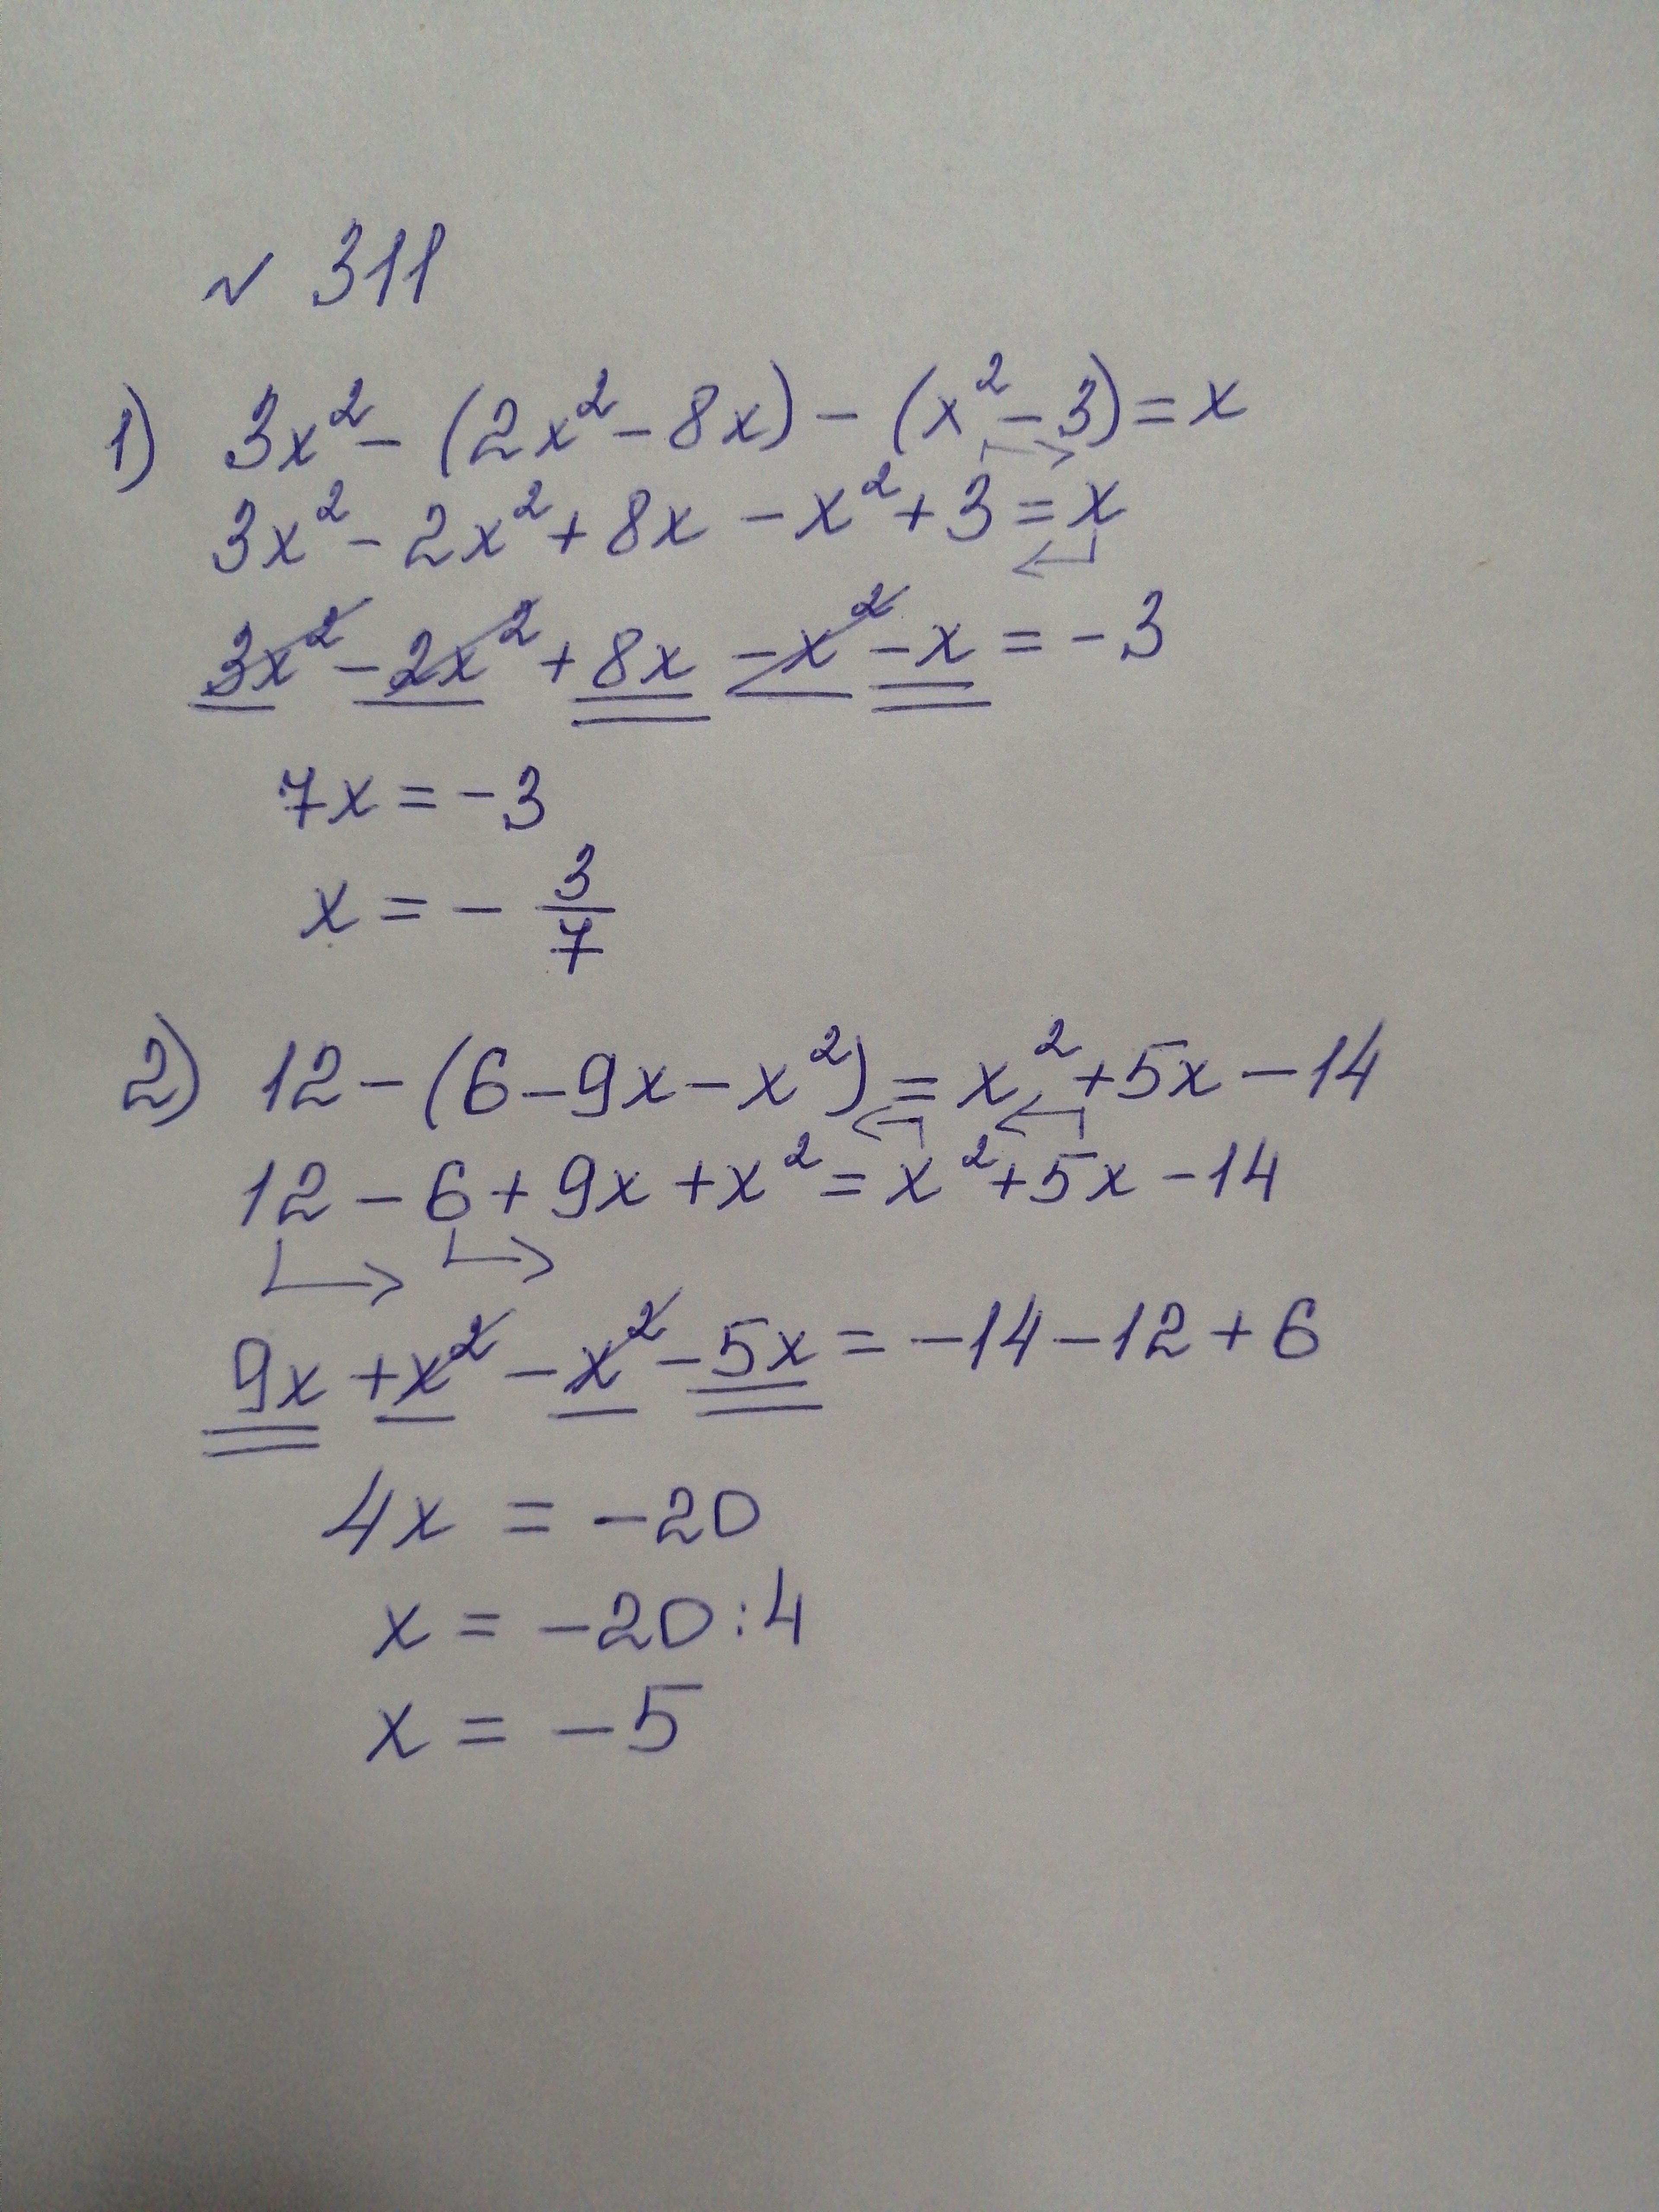 № 311
1) 3x² - (2x² - 8x) - (x² - 3) = x
3x² - 2x² + 8x - x² + 3 = x
3x² - 2x² + 8x - x² - x = -3
7x = -3
x = - 3/7
2) 12 - (6 - 9x - x²) = x² + 5x - 14
12 - 6 + 9x + x² = x² + 5x - 14
9x + x² - x² - 5x = -14 - 12 + 6
4x = -20
x = -20 : 4
x = -5